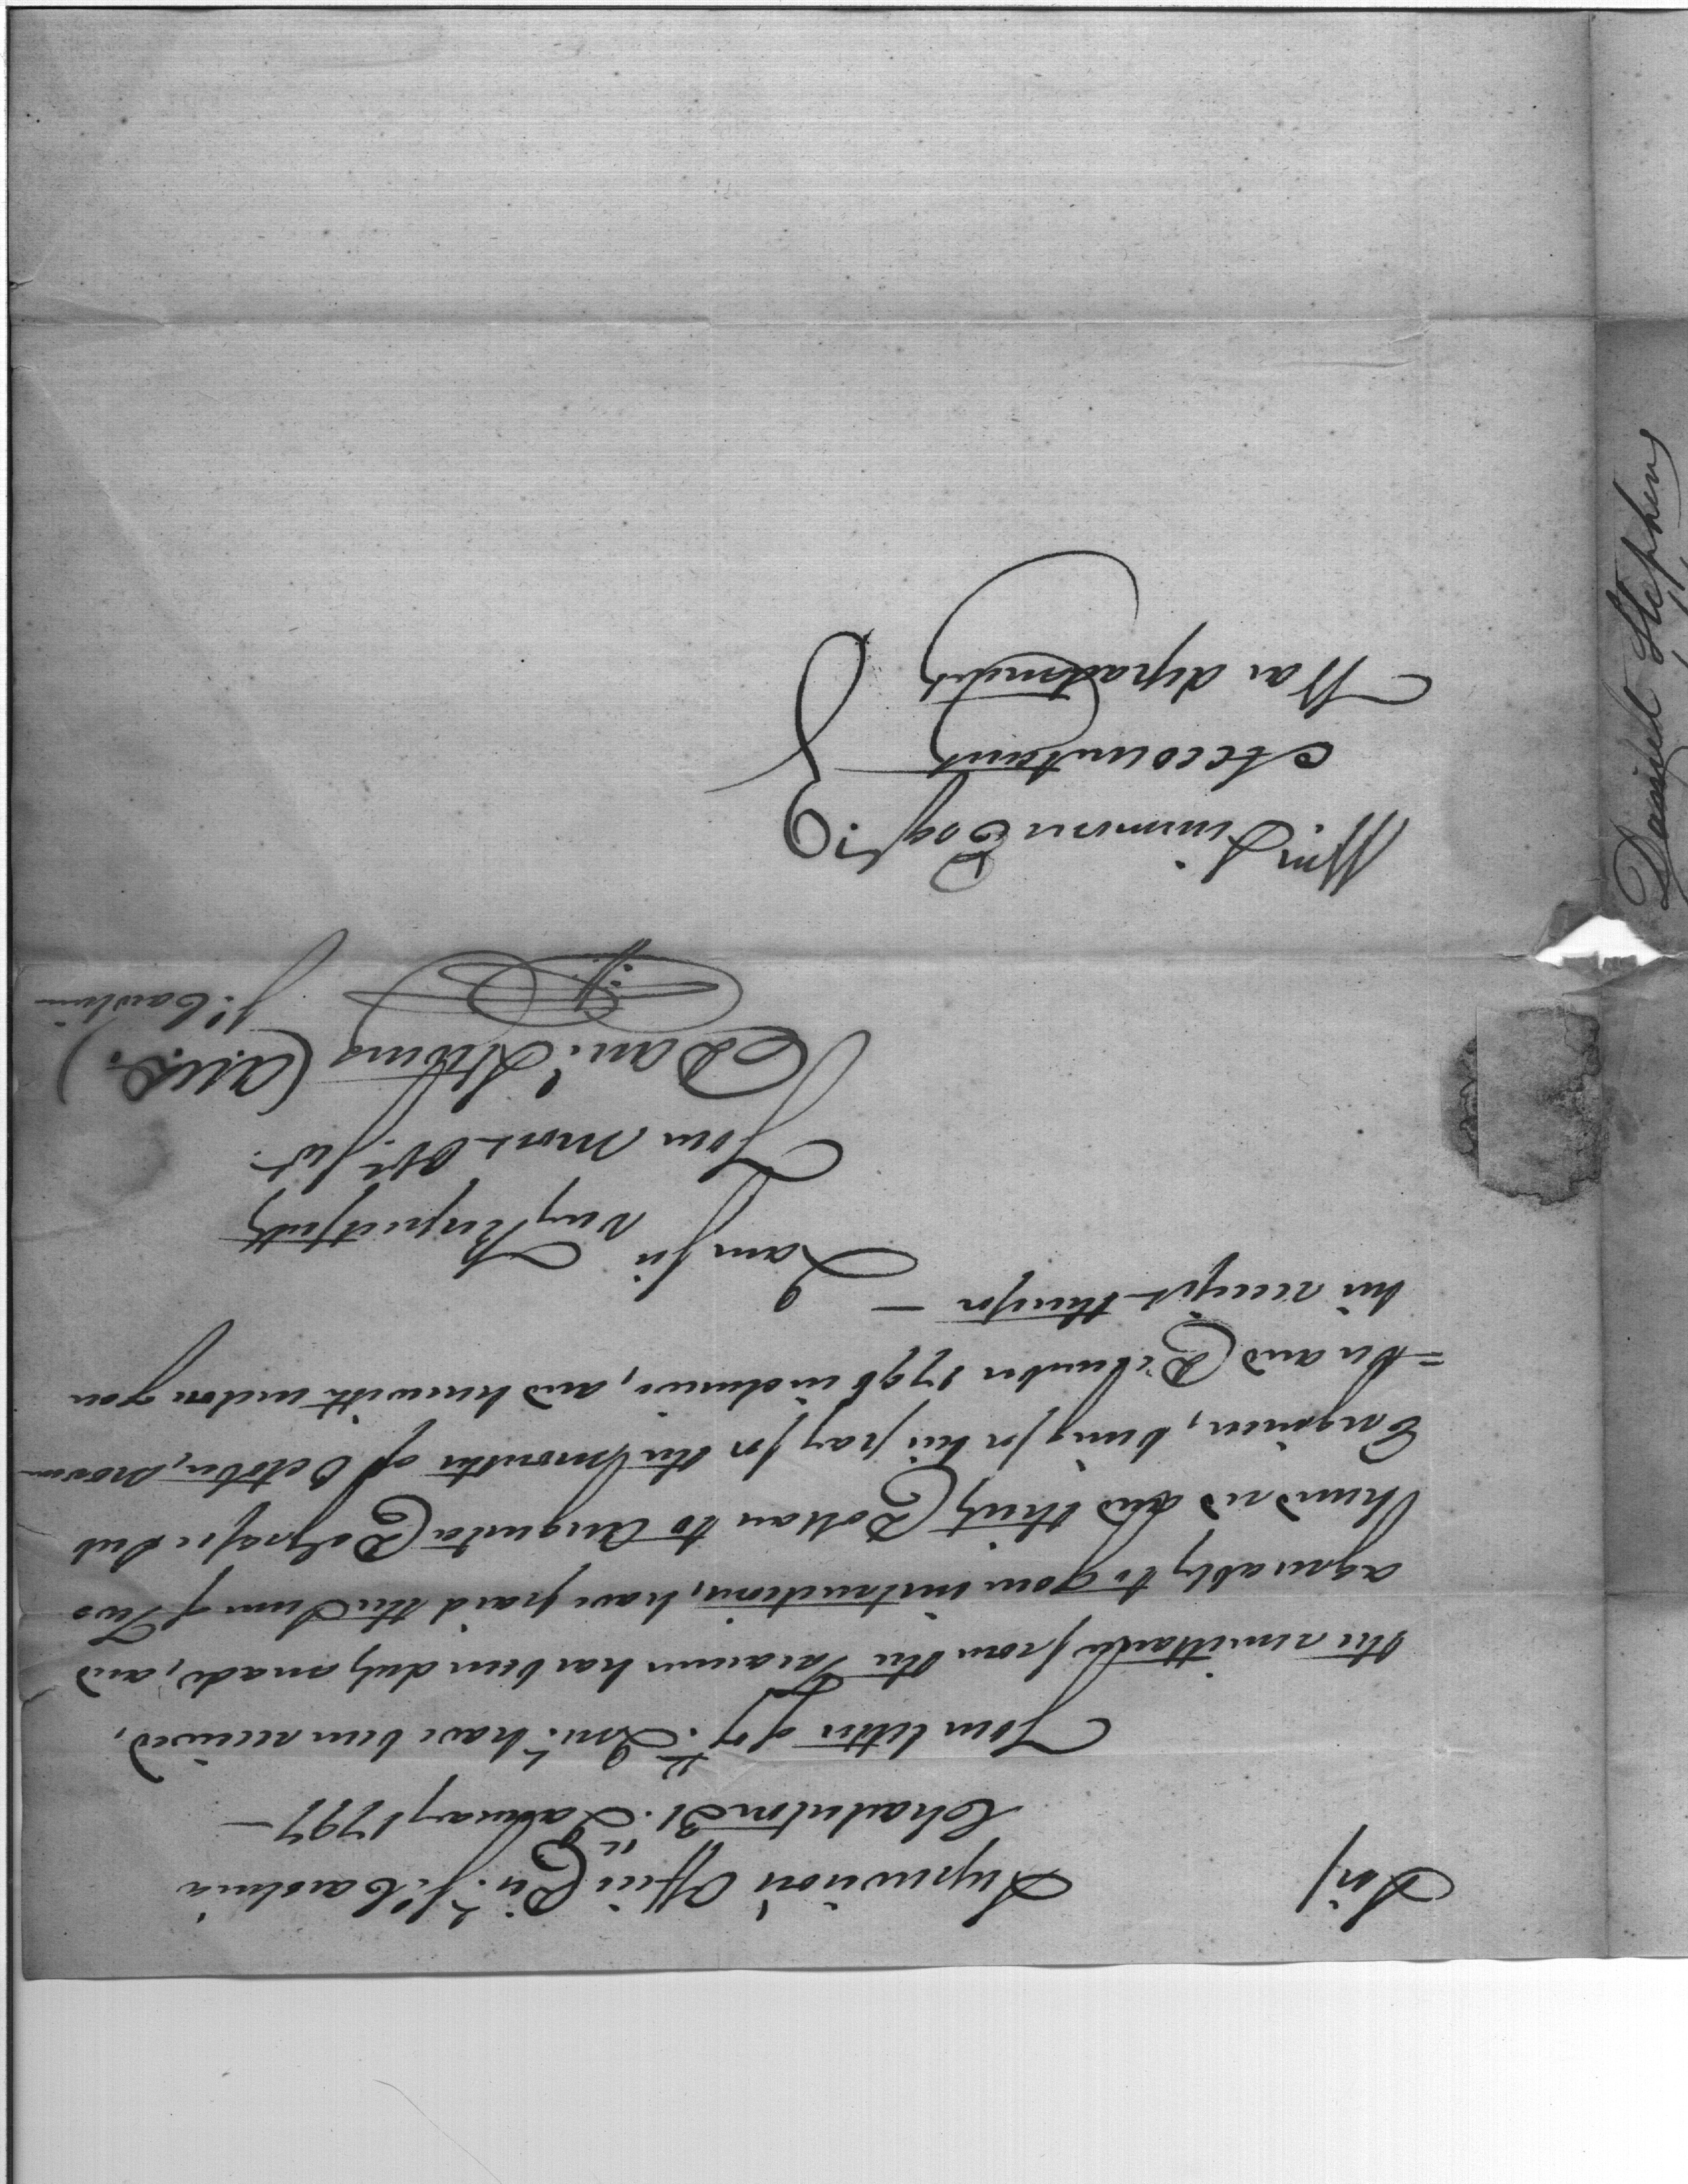 Sir/
Supervisors Office Dist. So. Carolina
Charleston 31. January 1797 —
Your letter of 7th. Inst. have been received,
the remittance from the Treasurer has been duly made, and
agreeably to your instructions, have paid the Sum of Two
hundred and thirty Dollars to Augustus DeGrasse Sub
Engineer, being for his pay for the months of October, Novem-
=ber and December 1796 inclusive, and herewith inclose you
his receipt therefor —
I am Sir
very Respectfully
Your most Obt. Sert.
Danl. Stevens
So. Carolina
Wm. Simmons Esqr.
Accountant
War department
Daniel Stephens